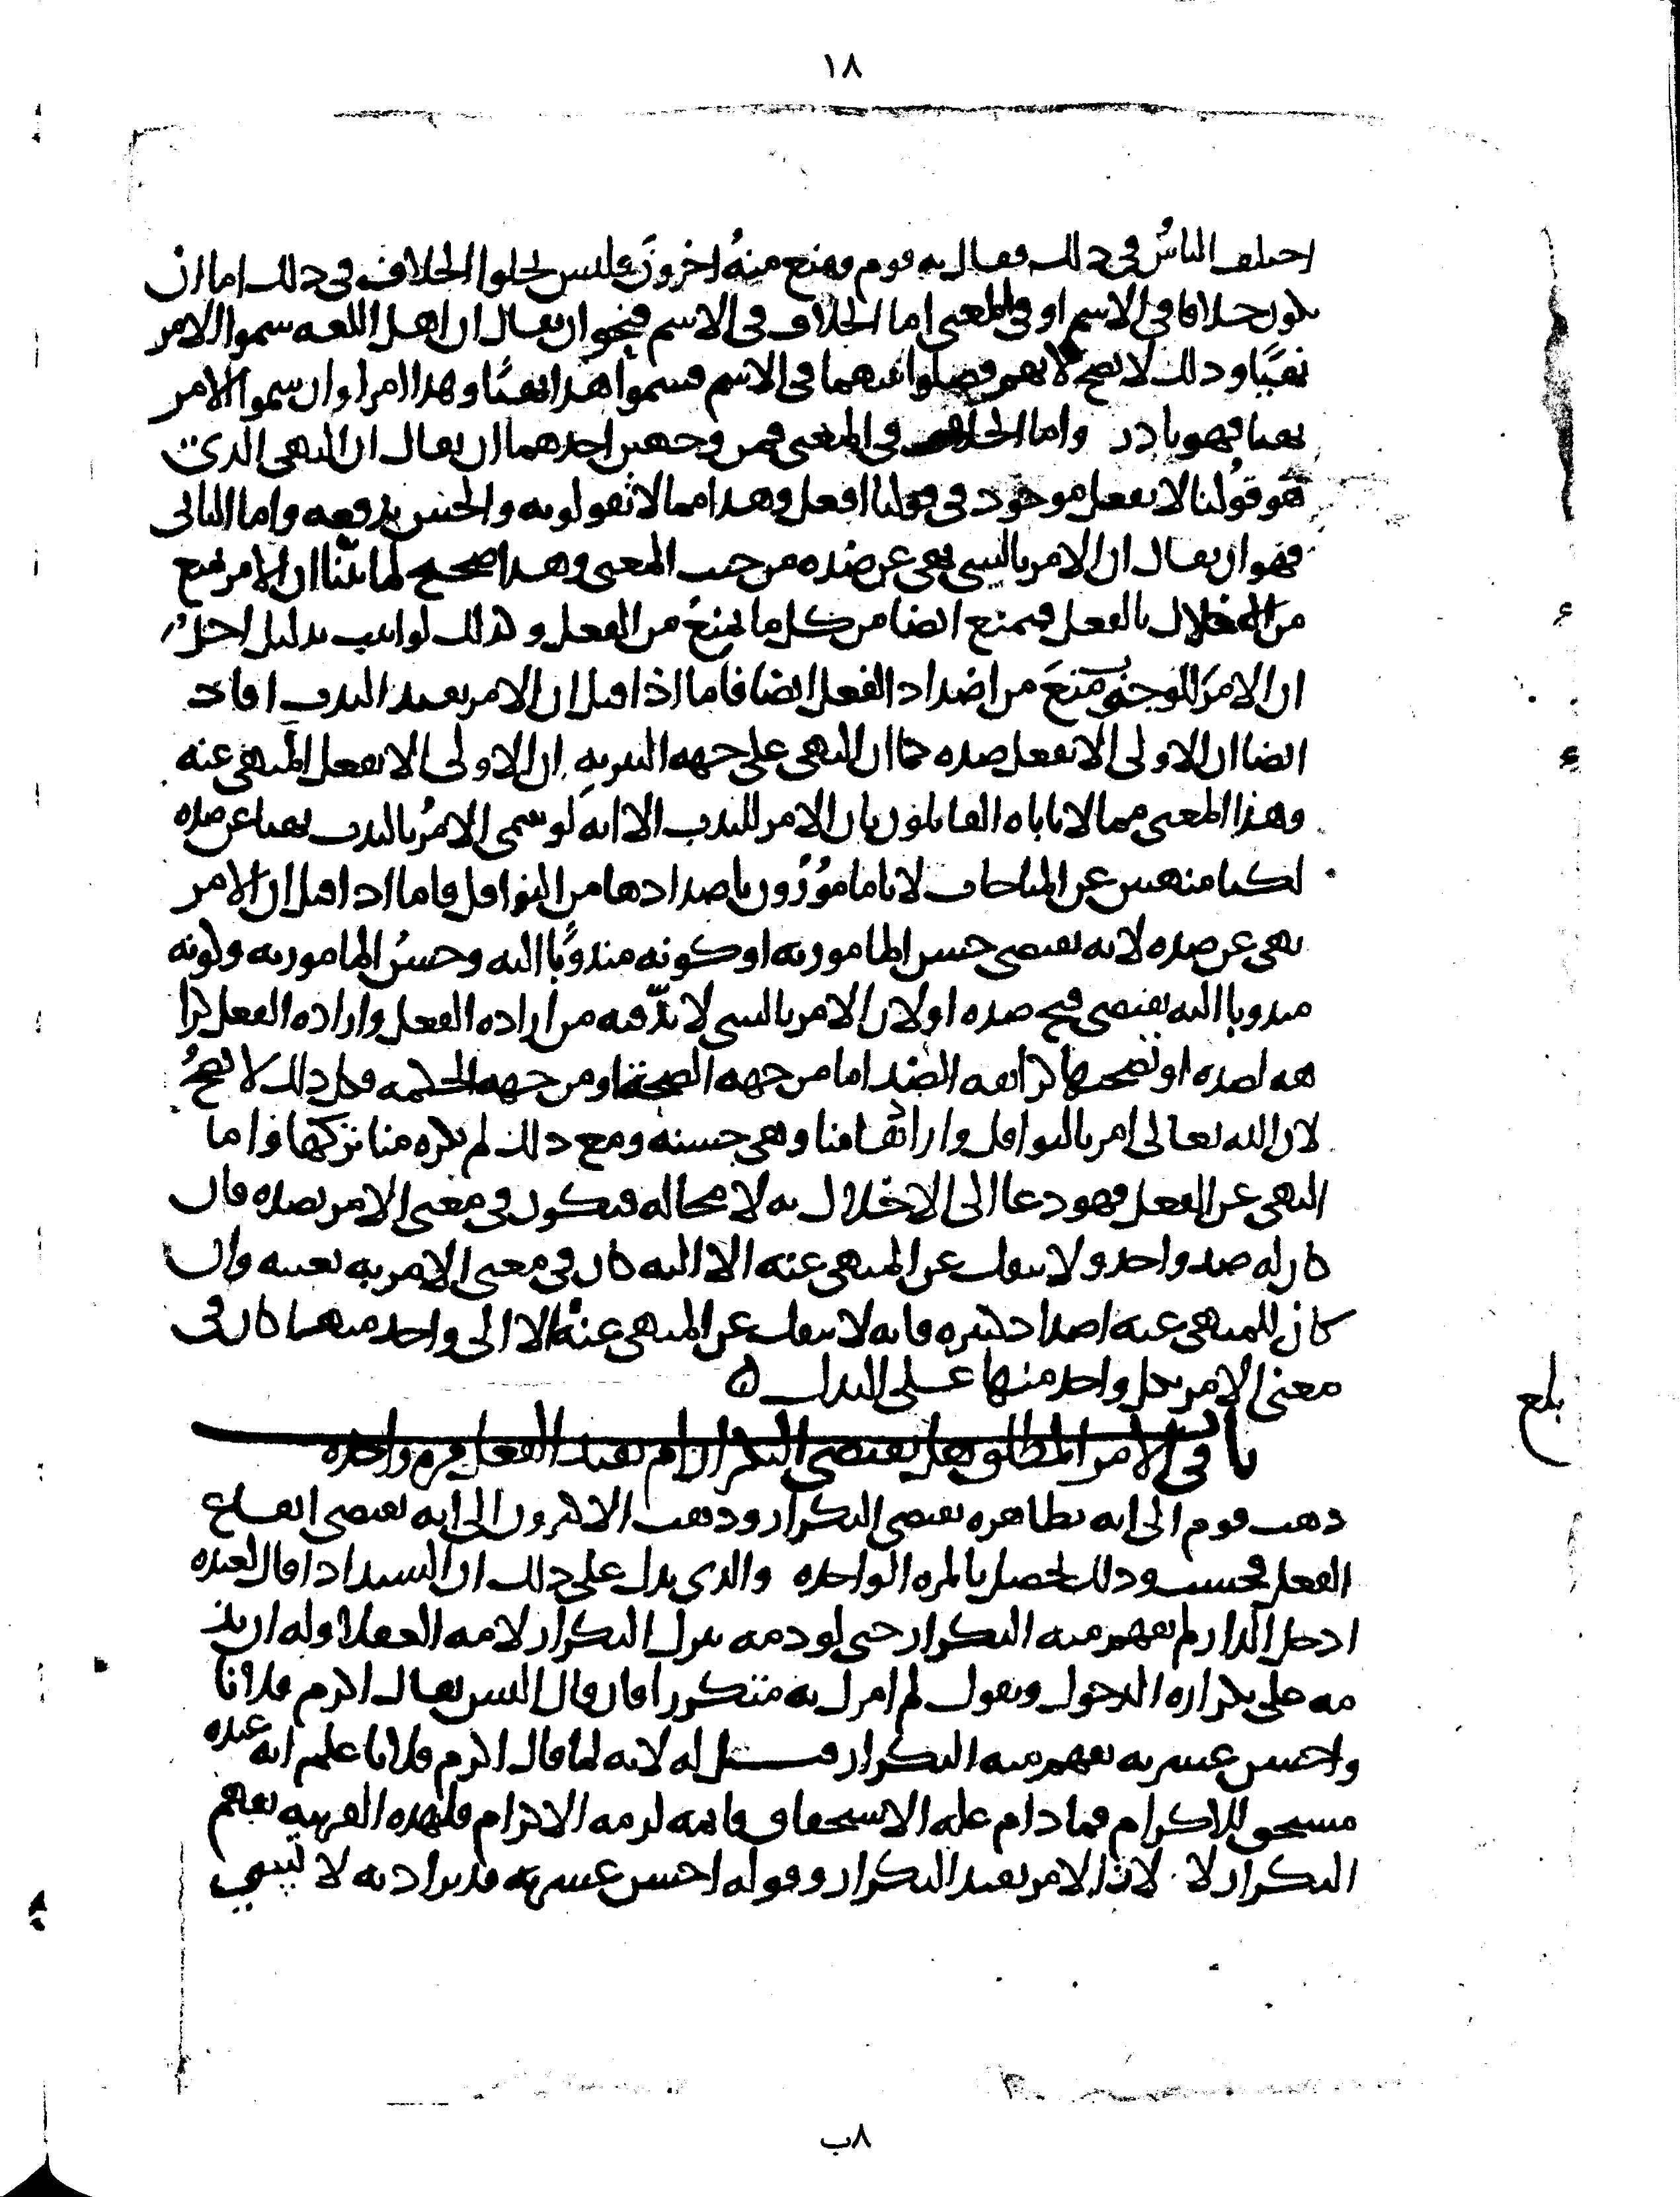 ١٨
اختلف الناسُ في ذلك فقال به قوم ومنع منهُ اخرون وليس يخلوا الخلاف في ذلك اما ان
يكون خلافا في الاسم او في المعنى اما الخلاف في الاسم فنحو ان يقال ان اهل اللغه سموا الامر
نهيًا وذلك لا يصح لانهم فصلوا بينهما في الاسم فسموا هذا نهيًا وهذا امرا وان سموا الامر
نهيا فهو نادر واما الخلاف في المعنى فمن وجهين احدهما ان يقال ان النهى الذي
هو قولنا لا تفعل موجود في قولنا افعل وهذا مما لا يقولونه والحس يدفعه واما الثانى
فهو ان يقال ان الامر بالشى نهى عن ضده من جهه المعنى وهذا صحيح لما بيّنا ان الامر يمنع
من الاخلال بالفعل فيمنع ايضا من كل ما يمنعُ من الفعل وكذلك لو ثبت بدليل اخر
ان الامرَ للوجوب منعَ من اضداد الفعل ايضا فاما اذا قيل ان الامر يفيد الندب افاد
ايضا ان الاولى الا نفعل ضده كما ان النهى على جهه التنزيه ان الاولى الا نفعل المنهى عنه
وهذا المعنى مما لا ياباه القايلون بان الامر للندب الا انه لو سمى الامرُ بالندب نهيا عن ضده
لكنا منهيين عن المباحات لانا مامورُون باضدادها من النوافل فاما اذا قيل ان الامر
نهى عن ضده لانه يقتضى حسن المامور به او كونه مندوبًا اليه وحسنُ المامور به وكونه
مندوبا اليه يقتضى قبح ضده او لان الامر بالشى لا بدّ فيه من اراده الفعل واراده الفعل كرا
هه لضده او تصحبها كراهه الضد اما من جهه الصحة او من جهه الحكمه وكل ذلك لا يصحُ
لان الله تعالى امر بالنوافل وارادها منا وهى حسنه ومع ذلك لم يكره منا تركها واما
النهى عن الفعل فهو دعا الى الاخلال به لا محاله فيكون في معنى الامر بضده فان
كان له ضد واحد ولا ينفك عن المنهى عنه الا اليه كان في معنى الامر به بعينه وان
كان للمنهى عنه اضداد كثيره فانه لا ينفك عن المنهى عنهُ الا الى واحد منها كان في
معنى الامر بكل واحد منها على البدل ه
بلغ
باب في الامر المطلق هل يقتضى التكرار ام يفيد الفعل مره واحده
ذهب قوم الى انه بظاهره يقتضى التكرار وذهب الاكثرون الى انه يقتضى ايقاع
الفعل فحسب وذلك يحصل بالمره الواحده والذى يدل على ذلك ان السيد اذا قال لعبده
ادخل الدار لم يفهم منه التكرار حتى لو ذمه بترك التكرار لامه العقلا وله ان يذ
مه على تكراره الدخول ويقول لم امرك به متكررا فان قال اليس يقال اكرم فلانا
واحسن عشرته يفهم منه التكرار قيل له لانه لما قال اكرم فلانا علم انه عنده
مستحق للاكرام فما دام عله الاستحقاق قايمه لزمه الاكرام فلهذه القرينه يفهم
التكرار لا لان الامر يفيد التكرار وقوله احسن عشرته قد يراد به لا تسى
٨ب